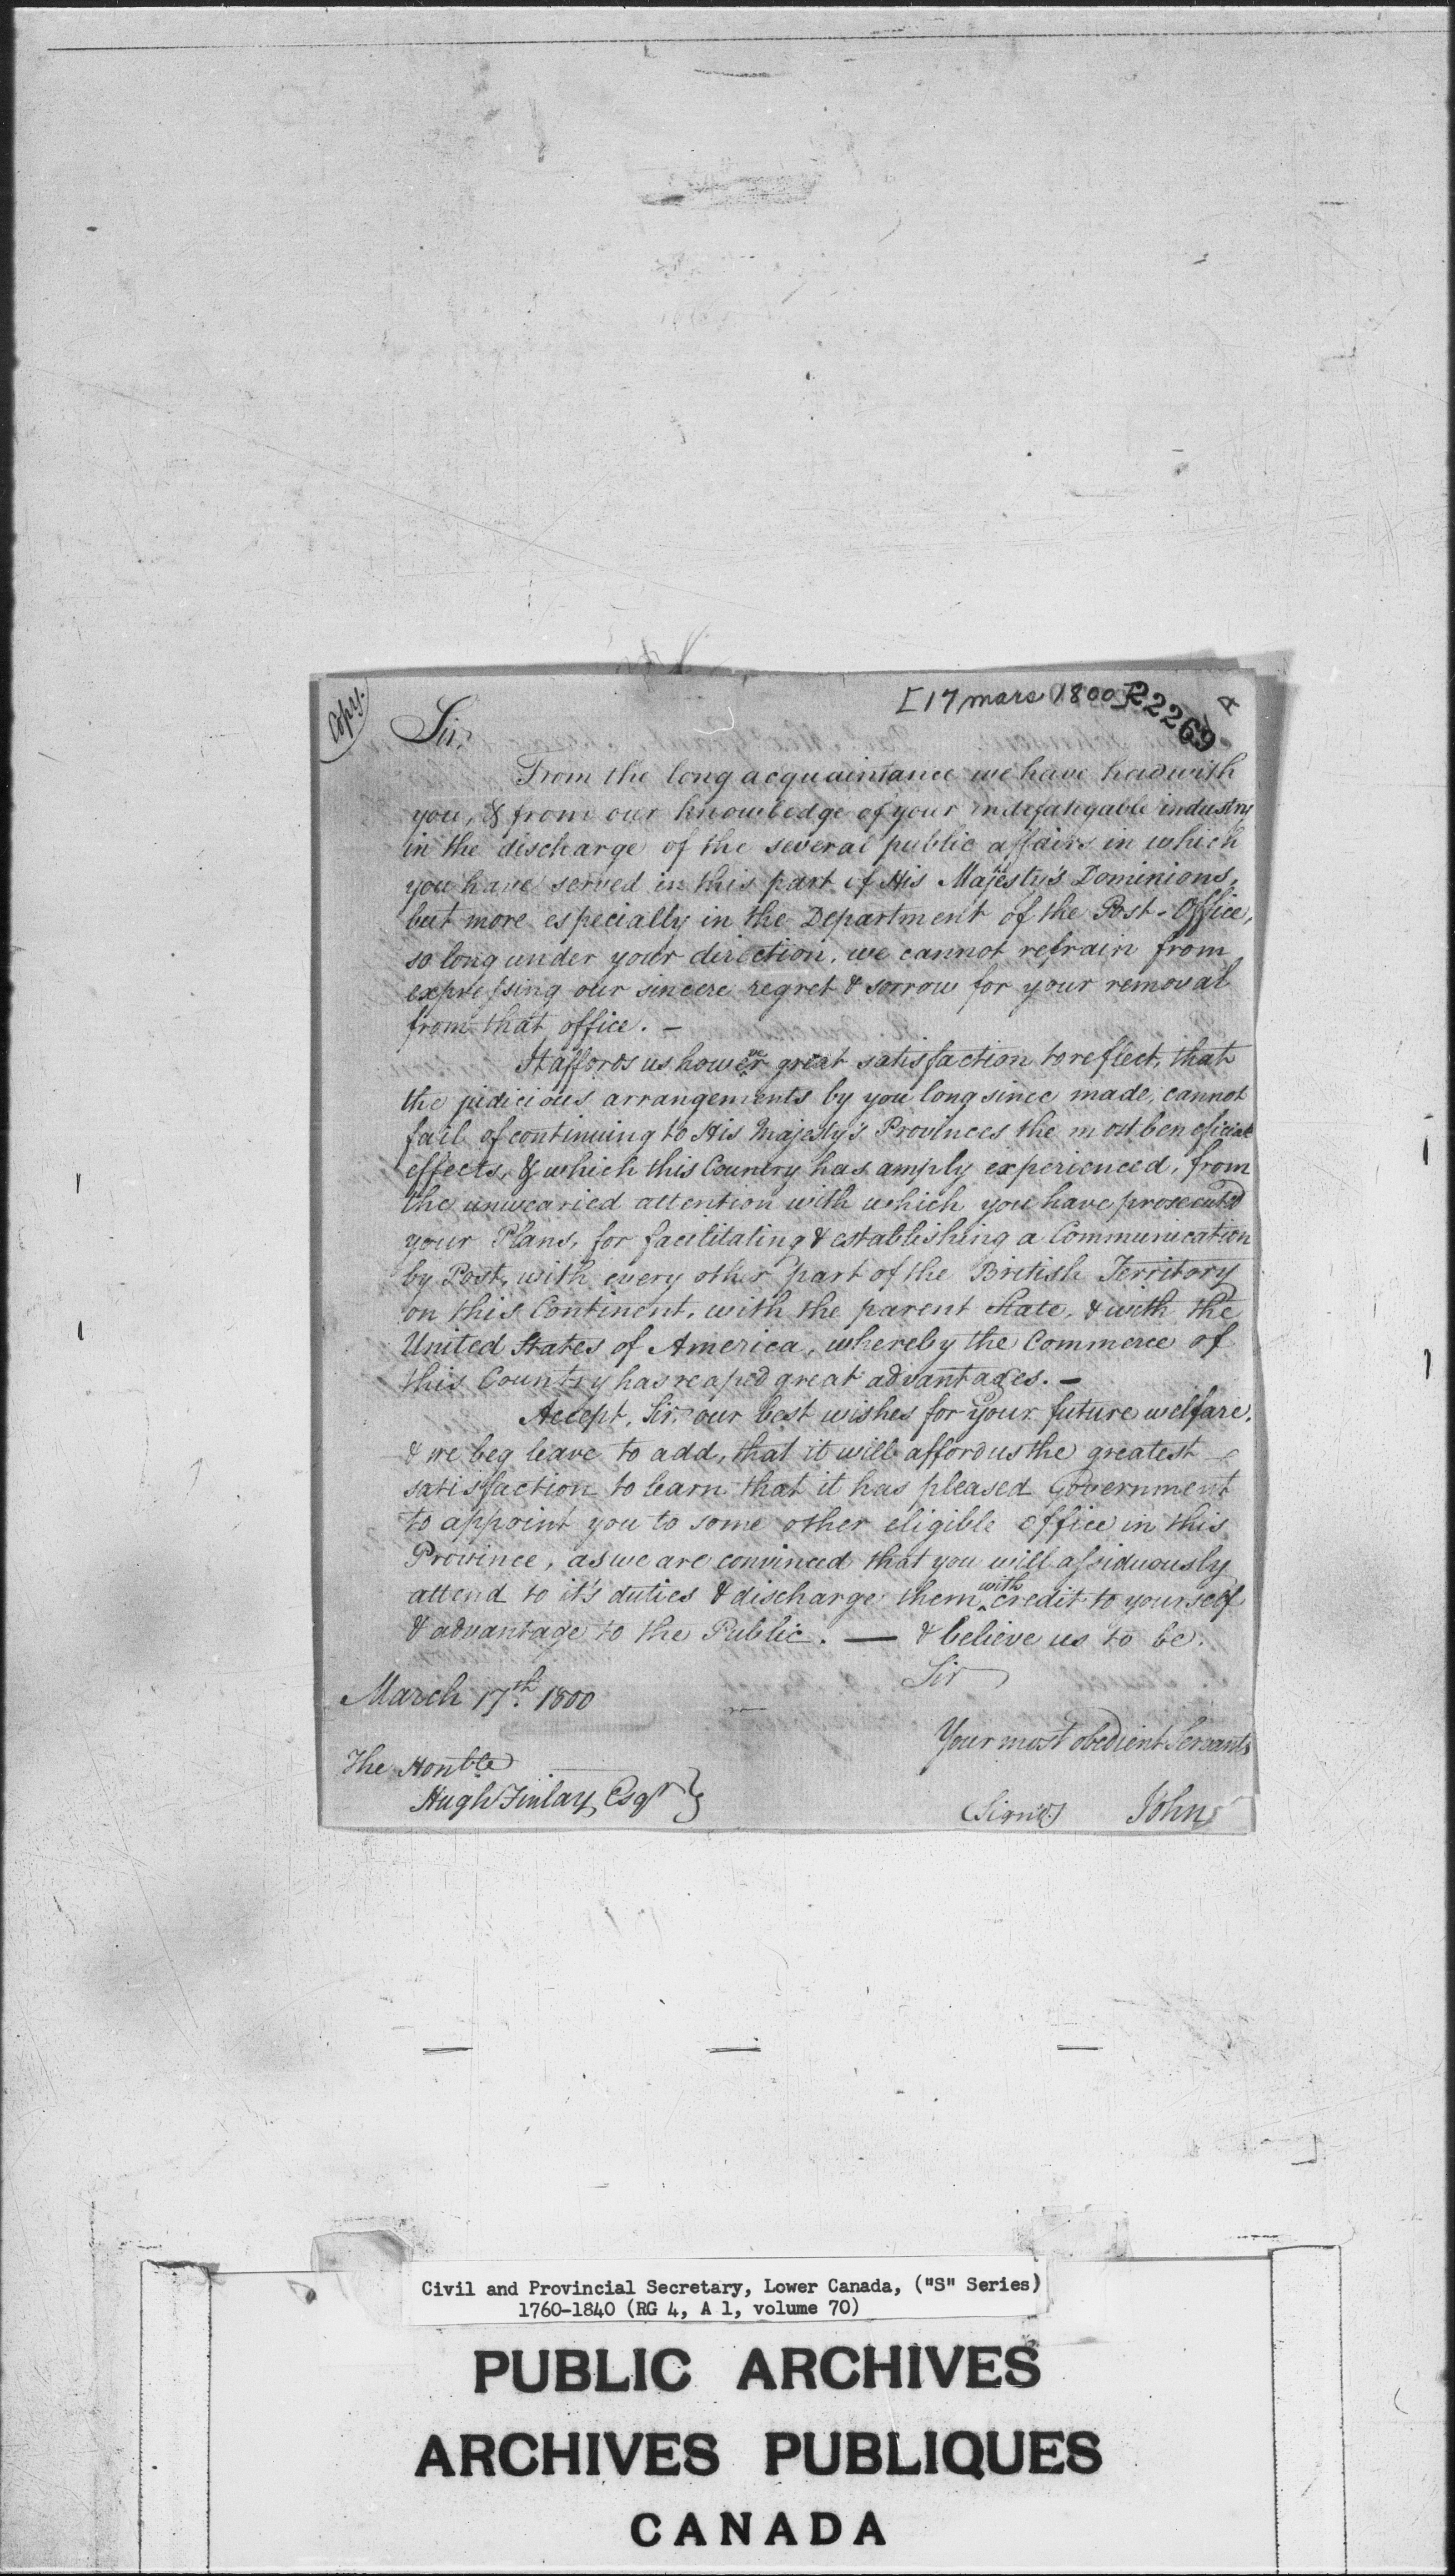 Copy.
[17 mars 1800]
22269
A
Sir,
From the long acquaintance we have had with
you, & from our knowledge of your indefatigable industry
in the discharge of the several public affairs in which
you have served in this part of His Majesty's Dominions,
but more especially in the Department of the Post-Office,
so long under your direction, we cannot refrain from
expressing our sincere regret & sorrow for your removal
from that office. —
It affords us however great satisfaction to reflect, that
the judicious arrangements by you long since made, cannot
fail of continuing to His Majesty's Provinces the most beneficial
effects, & which this Country has amply experienced, from
the unwearied attention with which you have prosecuted
your Plans, for facilitating & establishing a Communication
by Post, with every other part of the British Territory
on this Continent, with the parent State, & with the
United States of America, whereby the Commerce of
this Country has reaped great advantages. —
Accept, Sir, our best wishes for your future welfare,
& we beg leave to add, that it will afford us the greatest
satisfaction to learn that it has pleased Government
to appoint you to some other eligible office in this
Province, as we are convinced that you will assiduously
attend to it's duties & discharge them with credit to yourself
& advantage to the Public. — & believe us to be.
Sir
March 17th. 1800
Your most obedient Servants
The Honble
Hugh Finlay, Esqr }
(Sign'd) John
Civil and Provincial Secretary, Lower Canada, ("S" Series)
1760-1840 (RG 4, A 1, volume 70)
PUBLIC ARCHIVES
ARCHIVES PUBLIQUES
CANADA